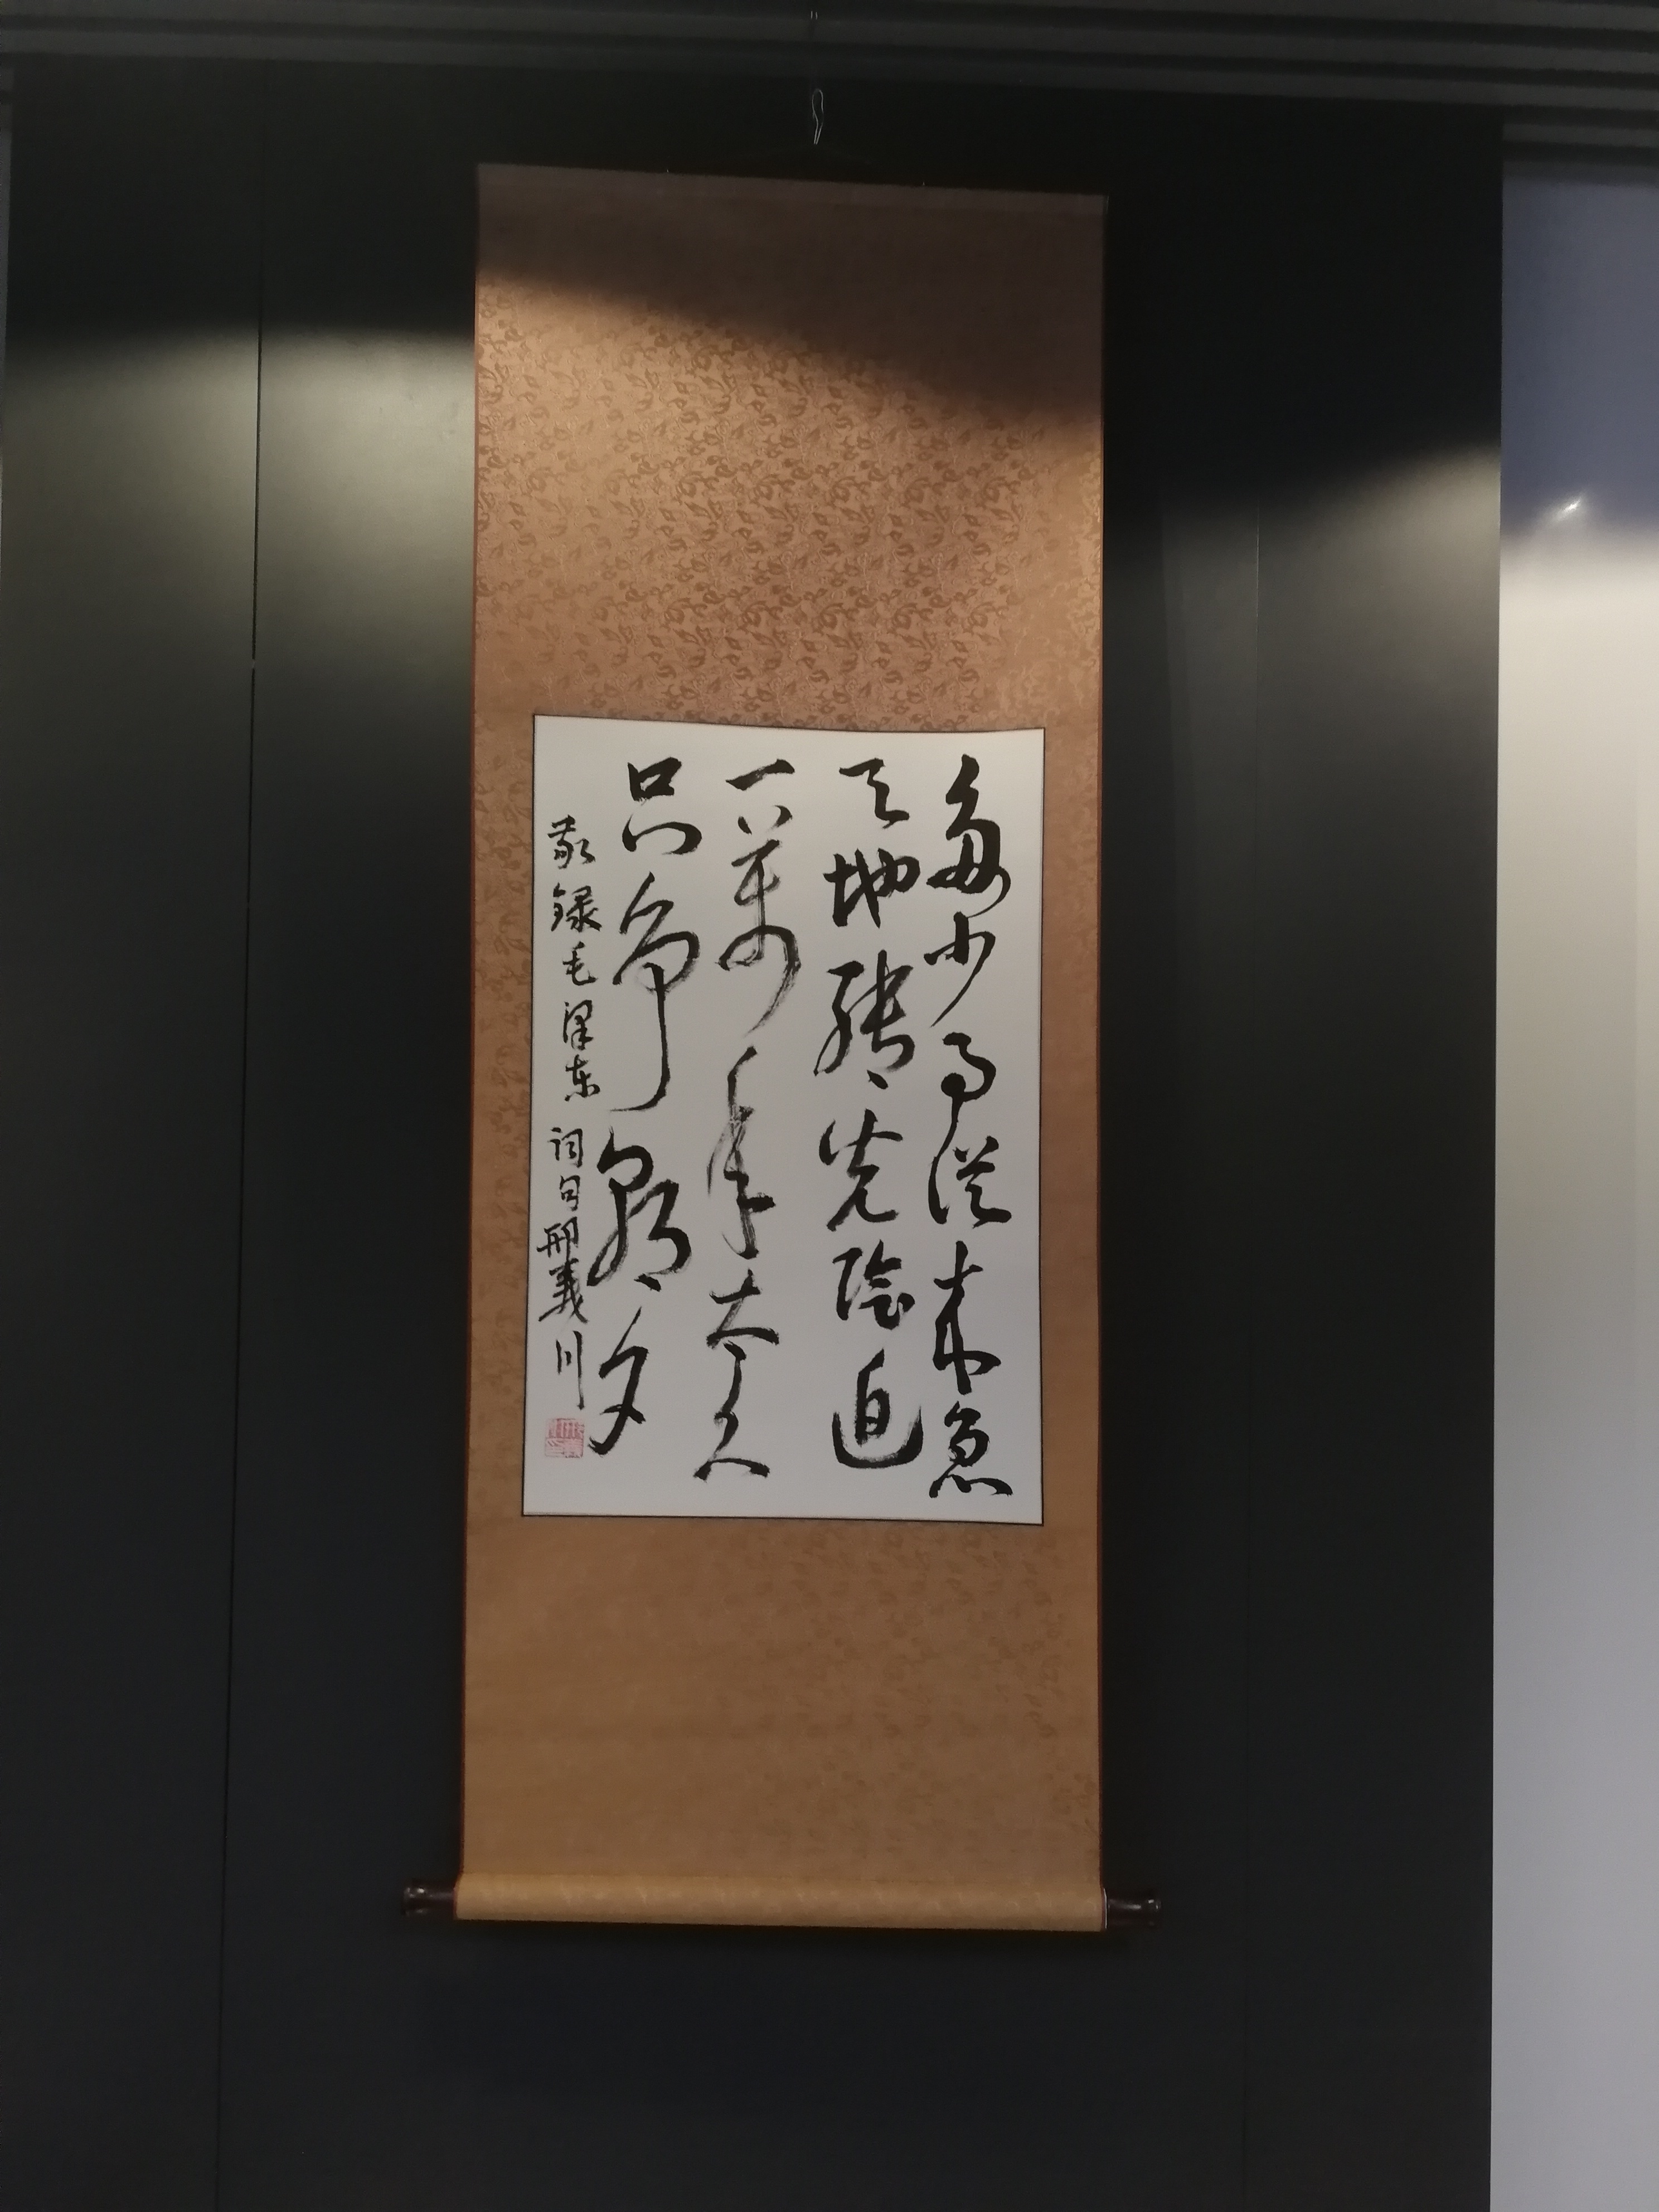 多少事從来急
天地转光陰迫
一萬年太久
只争朝夕
敬録毛泽东 词句 邢義川